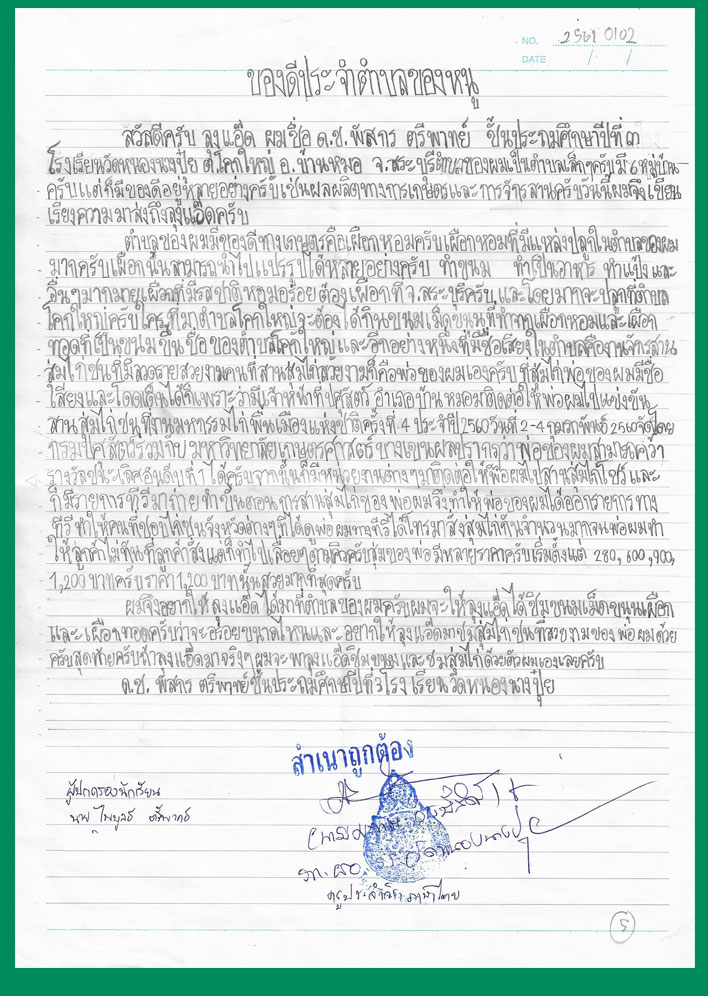 NO. 2561 0102
DATE / /
ของดีประจำตำบลของหนู
สวัสดีครับ ลุงแอ๊ด ผมชื่อ ด.ช. พัสกร ตรีพาทย์ ชั้นประถมศึกษาปีที่ ๓
โรงเรียนวัดหนองนางปุ๋ย ต.โคกใหญ่ อ.บ้านหมอ จ.สระบุรีตำบลของผมเป็นตำบลเล็กๆครับมี 6 หมู่บ้าน
ครับแต่ก็มีของดีอยู่หลายอย่างครับเช่นผลผลิตทางการเกษตรและการจักรสานครับวันนี้ผมจึงเขียน
เรียงความมาส่งถึงลุงแอ๊ดครับ
ตำบลของผมมีของดีทางเกษตรคือเผือกหอมครับเผือกหอมที่มีแหล่งปลูกในตำบลของผม
มากครับเผือกนั้นสามารถนำไปแปรรูปได้หลายอย่างครับ ทำขนม ทำเป็นอาหาร ทำแป้ง และ
อื่นๆมากมายเผือกที่มีรสชาติหอมอร่อย ต้องเผือกที่ จ.สระบุรีครับ และโดยมากจะปลูกที่ตำบล
โคกใหญ่ครับใครที่มาตำบลโคกใหญ่จะต้องได้กินขนมเม็ดขนุนที่ทำจากเผือกหอมและเผือก
ทอดที่เป็นขนมขึ้นชื่อของตำบลโคกใหญ่และอีกอย่างหนึ่งที่มีชื่อเสียงในตำบลคืองานจักรสาน
สุ่มไก่ชนที่มีลวดลายสวยงามคนที่สานสุ่มไก่สวยงามก็คือพ่อของผมเองครับ ที่สุ่มไก่พ่อของผมมีชื่อ
เสียงและโดดเด่นได้ก็เพราะว่ามีเจ้าหน้าที่ปศุสัตว์ อำเภอบ้านหมอมาติดต่อให้พ่อผมไปแข่งขัน
สานสุ่มไก่ชนที่งานมหกรรมไก่พื้นเมืองแห่งชาติครั้งที่ 4 ประจำปี 2560 วันที่ 2-4 กุมภาพันธ์ 2560 จัดโดย
กรมปศุสัตว์ร่วมกับมหาวิทยาลัยเกษตรศาสตร์ บางเขนผลปรากฏว่าพ่อของผมสามารถคว้า
รางวัลชนะเลิศอันดับที่ 1 ได้ครับจากนั้นก็มีหน่วยงานต่างๆมาติดต่อให้พ่อผมไปสานสุ่มไก่โชว์ และ
ก็มีรายการทีวีมาถ่ายทำขั้นตอนการสานสุ่มไก่ของพ่อผมจึงทำให้พ่อของผมได้ออกรายการทาง
ทีวี ทำให้คนที่ชอบไก่ชนจังหวัดต่างๆที่ได้ดูพ่อผมทางทีวีได้โทรมาสั่งสุ่มไก่กันจำนวนมากจนพ่อผมทำ
ให้ลูกค้าไม่ทันที่ลูกค้าสั่งแต่ก็ทำไปเรื่อยๆตามคิวครับสุ่มของพ่อมีหลายราคาครับเริ่มตั้งแต่ 280, 600, 900,
1,200 บาทครับราคา 1,200 บาทนั้นสวยมากที่สุดครับ
ผมจึงอยากให้ลุงแอ๊ดได้มาที่ตำบลของผมครับผมจะให้ลุงแอ๊ดได้ชิมขนมเม็ดขนุนเผือก
และเผือกทอดครับว่าจะอร่อยขนาดไหนและอยากให้ลุงแอ๊ดมาชมสุ่มไก่ชนที่สวยงามของพ่อผมด้วย
ครับสุดท้ายครับถ้าลุงแอ๊ดมาจริงๆผมจะพาลุงแอ๊ดชิมขนมและชมสุ่มไก่ด้วยตัวผมเองเลยครับ
ด.ช. พัสกร ตรีพาทย์ชั้นประถมศึกษาปีที่ 3 โรงเรียนวัดหนองนางปุ๋ย
สำเนาถูกต้อง
ผู้ปกครองนักเรียน
นาย ไพบูลย์ ตรีพาทย์
ครูประจำวิชาภาษาไทย
5